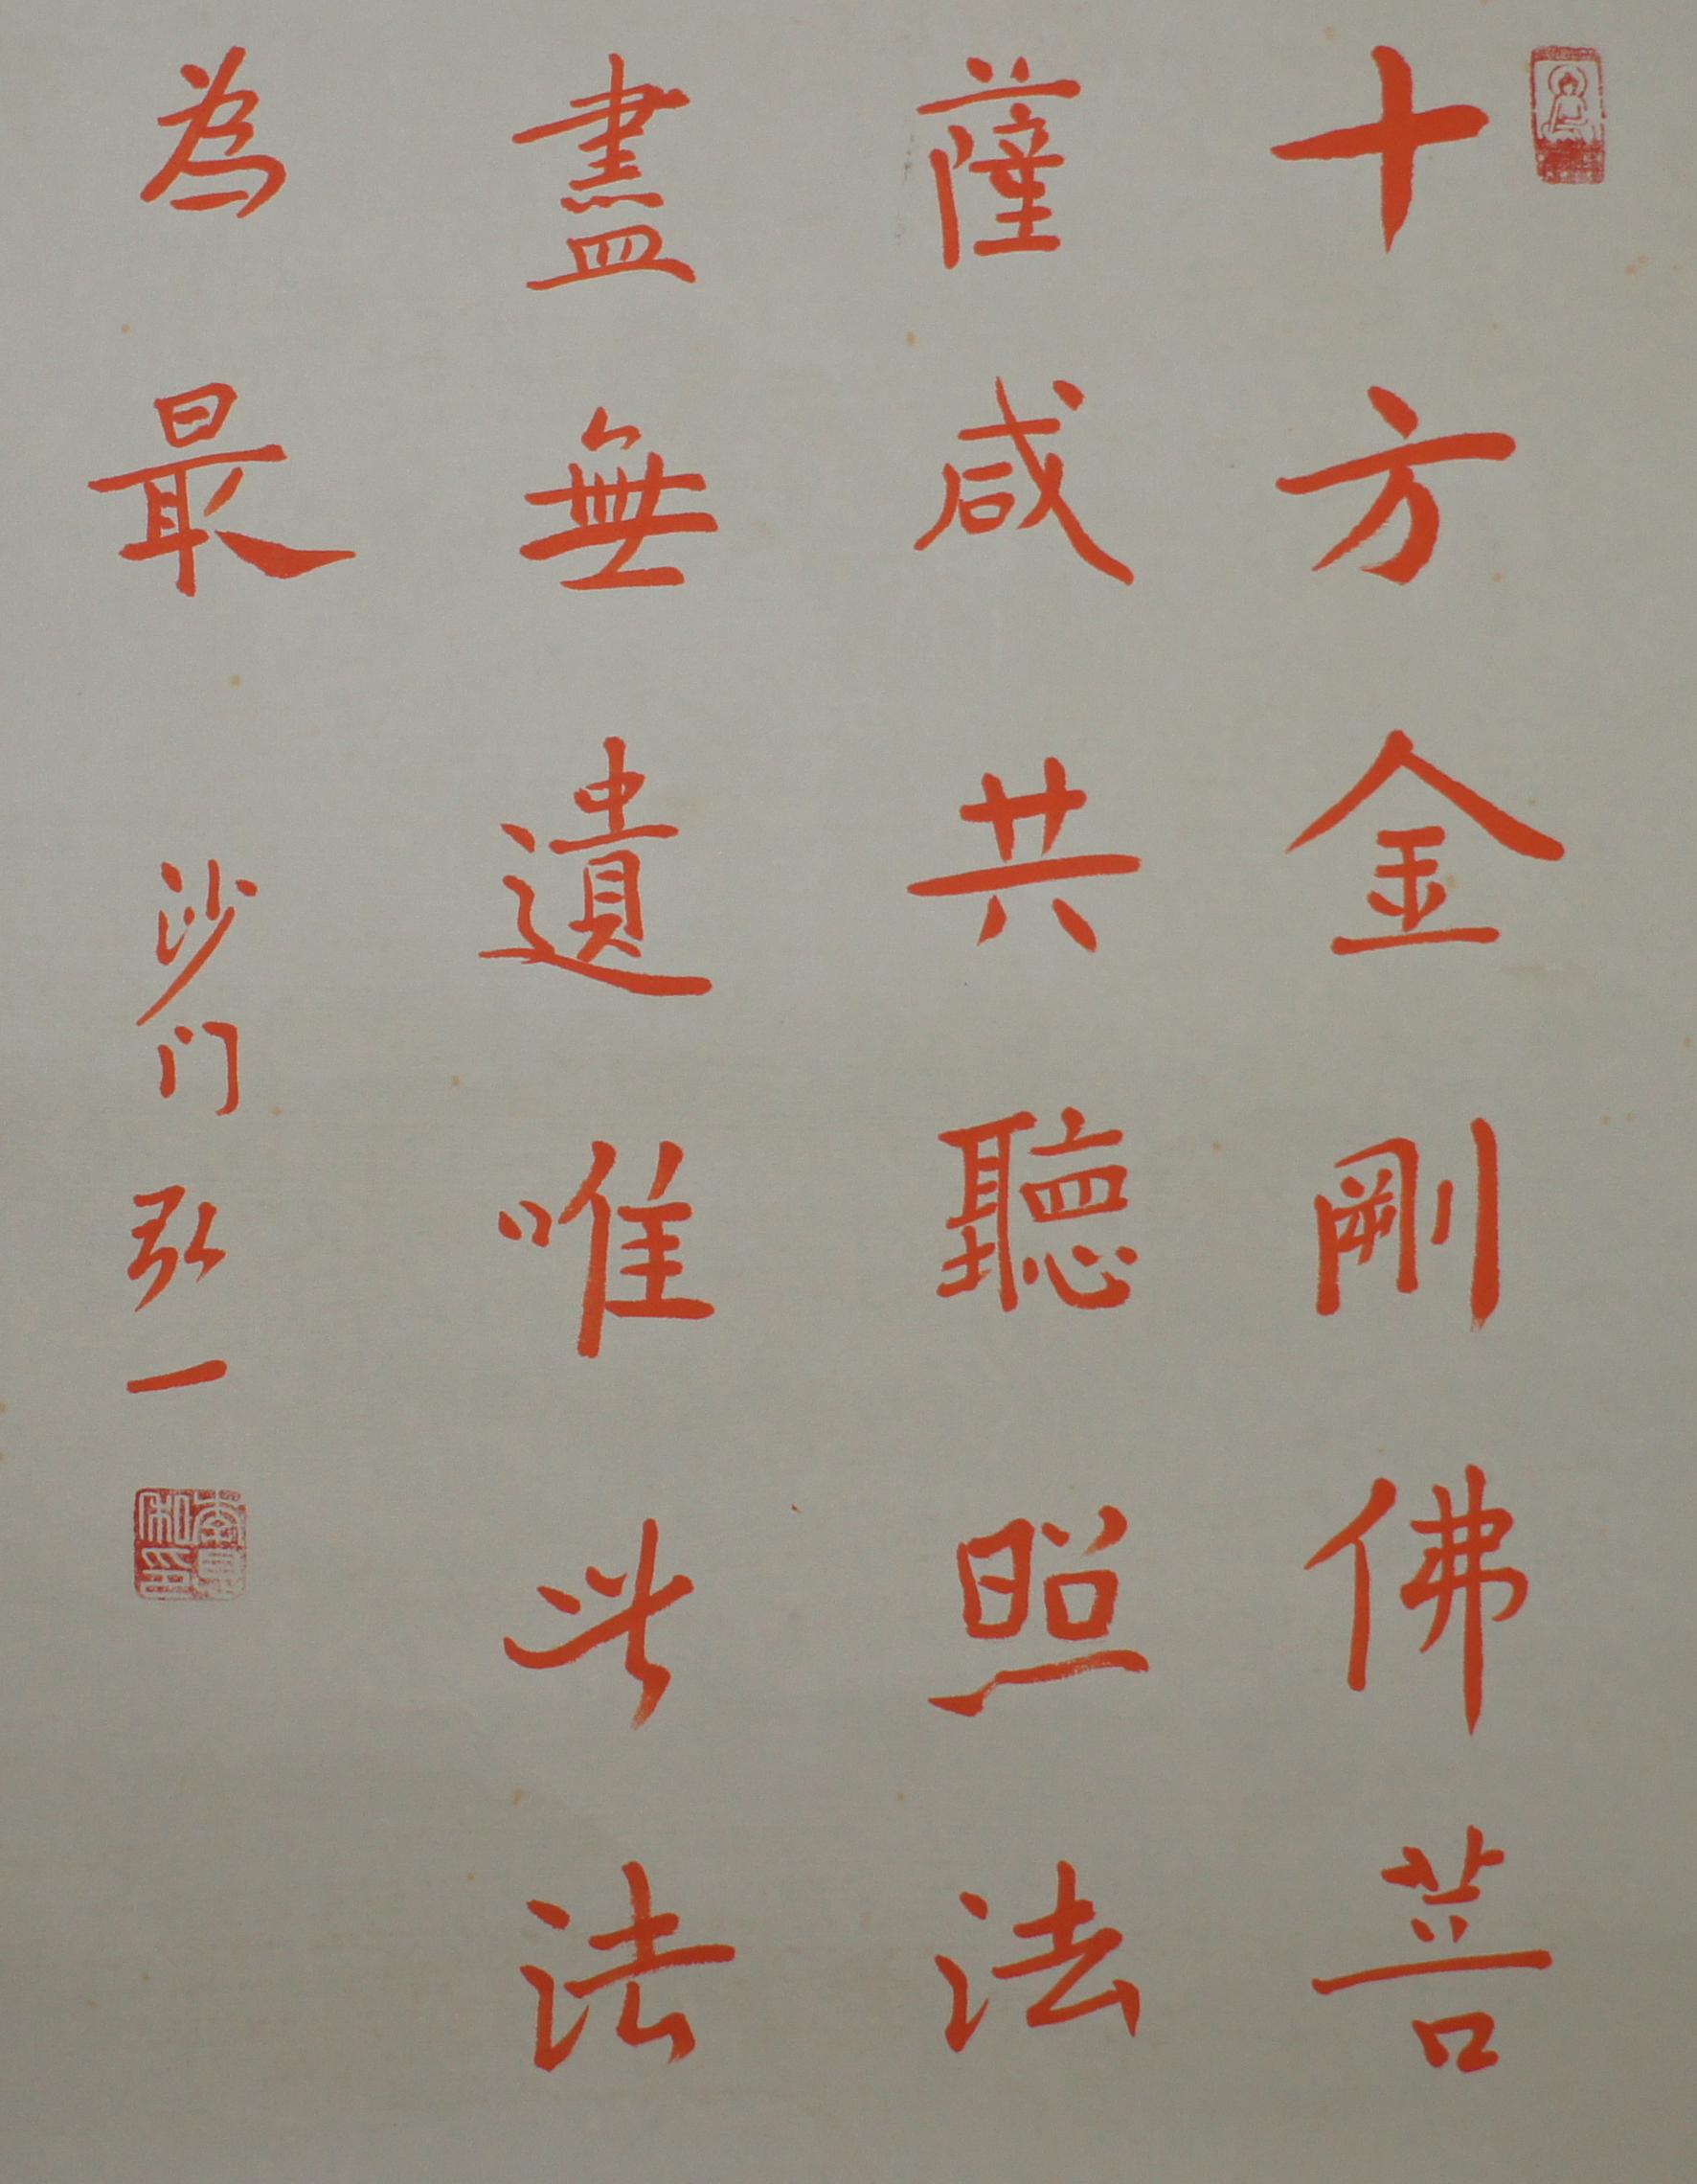 十方金剛佛菩
薩咸共聽照法
盡無遺唯此法
為最
沙门弘一